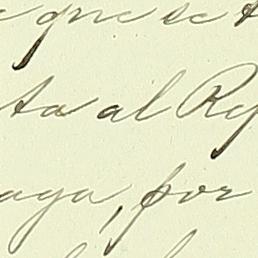 que se t
ta al Ry
aya, por